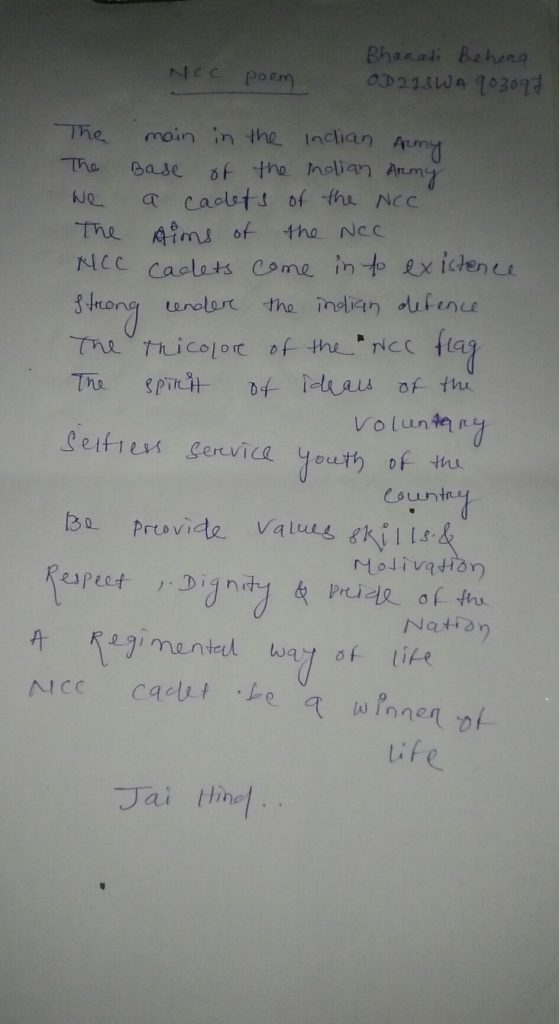 Bharati Behera
NCC poem
OD21SWA 903097
The main in the Indian Army
The Base of the Indian Army
We a cadets of the NCC
The Aims of the NCC
NCC cadets come in to existence
strong under the indian defence
The Tricolore of the NCC flag
The spirit of ideals of the
voluntary
Selfless service youth of the
country
Be provide values skills &
Motivation
Respect , Dignity & pride of the
Nation
A Regimental way of life
NCC cadet be a winner of
life
Jai Hind..